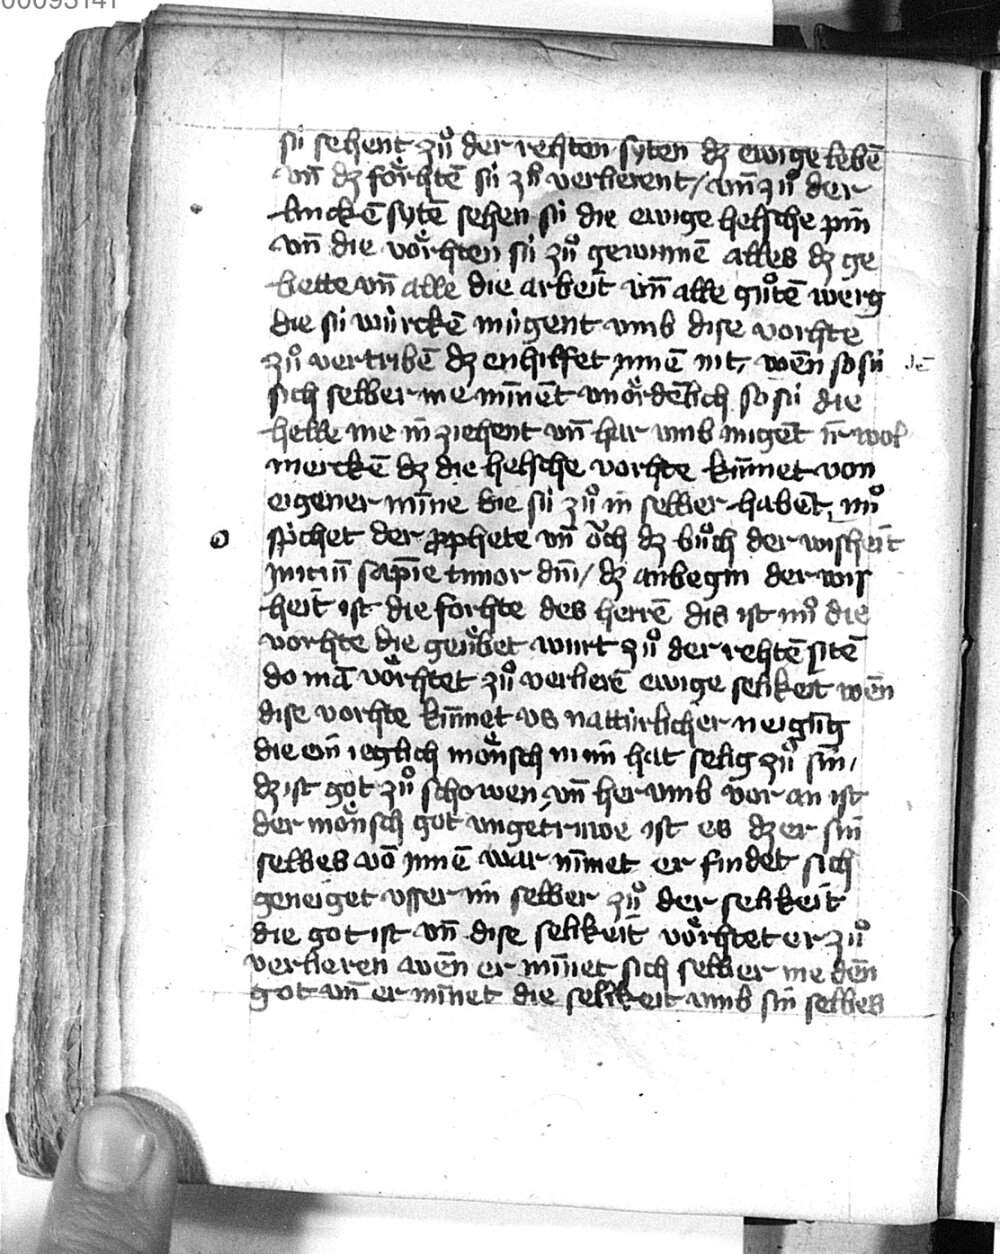 00093141
sú sehent zuͦ der rehten syten dz ewige lebē
vn̄ dz foͤrhtē sú zuͦ verlierent / vn̄ zuͦ der
linckē sytē sehen sú die ewige helsche pin
vn̄ die voͤrhten sú zuͦ gewinnē alles dz ge
bette vn̄ alle die arbeit vn̄ alle guͦtē werg
die sú würckē mügent vmb dise vorhte
zuͦ vertribē dz enhilffet jnnē nit, wēn so sú
sich selber me minnēt vnordēlich so sú die
helle me in ziehent vn̄ har vmb mügēt ir wol
merckē dz die helsche vorhte kūmet von
eigener mīne die sú zuͦ in selber habēt, nuͦ
spͥchet der prophete vn̄ oͮch dz buͦch der wisheit
jnitiū sapīe timor dn̄i / dz anbegin der wis
heit ist die forhte des herrē dis ist nuͦ die
vorhte die geuͤbet wurt zuͦ der rehtē sitē
do mā voͤrhtet zuͦ verlierē ewige selikeit wēn
dise vorhte kūmet vs nattúrlicher neigūg
die ein ieglich moͤnsch in im hat selig zuͦ sin,
dz ist got zuͦ schowen, vn̄ her vmb wor an ist
der moͤnsch got vngetruwe ist es dz er sin
selbes vō jnnē war nīmet er findet sich
geneiget vsser im selber zuͦ der selikeit
die got ist vn̄ dise selikeit voͤrhtet er zuͦ
verlieren wēn er mīnet sich selber me dēn
got vn̄ er mīnet die selikeit vmb sin selbes